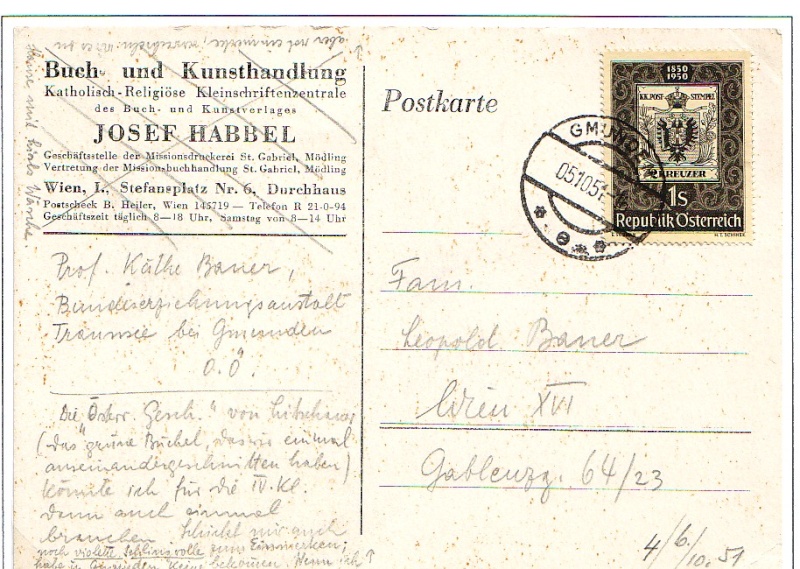 Buch- und Kunsthandlung
Katholisch-Religiöse Kleinschriftenzentrale
des Buch- und Kunstverlages
JOSEF HABBEL
Geschäftsstelle der Missionsdruckerei St. Gabriel, Mödling
Vertretung der Missionsbuchhandlung St. Gabriel, Mödling
Wien, I., Stefansplatz Nr. 6, Durchhaus
Postscheck B. Heiler, Wien 145719 — Telefon R 21-0-94
Geschäftszeit täglich 8—18 Uhr, Samstag von 8—14 Uhr
Prof. Käthe Bauer,
Bundeserziehungsanstalt
Traunsee bei Gmunden
O.Ö.
Die Österr. Gesch." von
(das "grüne Büchel, das wir einmal
auseinandergeschnitten haben)
könnte ich für die IV. Kl.
dann auch einmal
brauchen. Schickt mir auch
noch violette Schlingwolle zum Einmerken;
habe in Gmunden keine bekommen. Wenn ich
Postkarte
1850
1950
KK.POST-STEMPEL
2 KREUZER
1s
Republik Österreich
GMUNDEN
05.10.51
Fam.
Leopold Bauer
Wien XVI
Gablenzg. 64/23
4/6./10.51